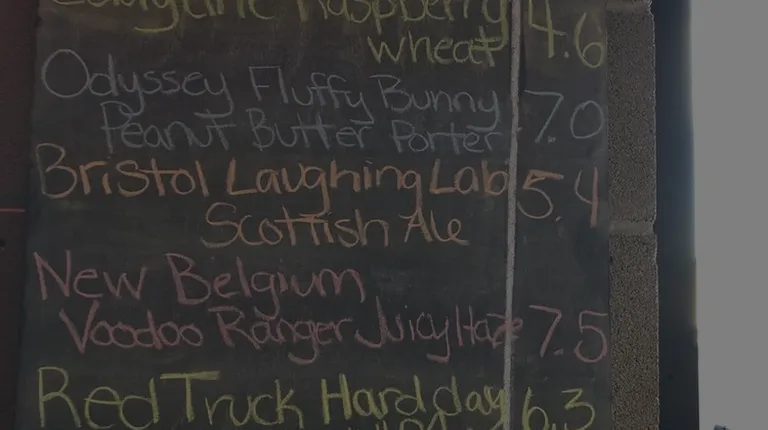 Raspberry 4.6
Wheat
Odyssey Fluffy Bunny 7.0
Peanut Butter Porter
Bristol Laughing Lab 5.4
Scottish Ale
New Belgium
Voodoo Ranger Juicy Haze 7.5
Red Truck Hard day 6.3